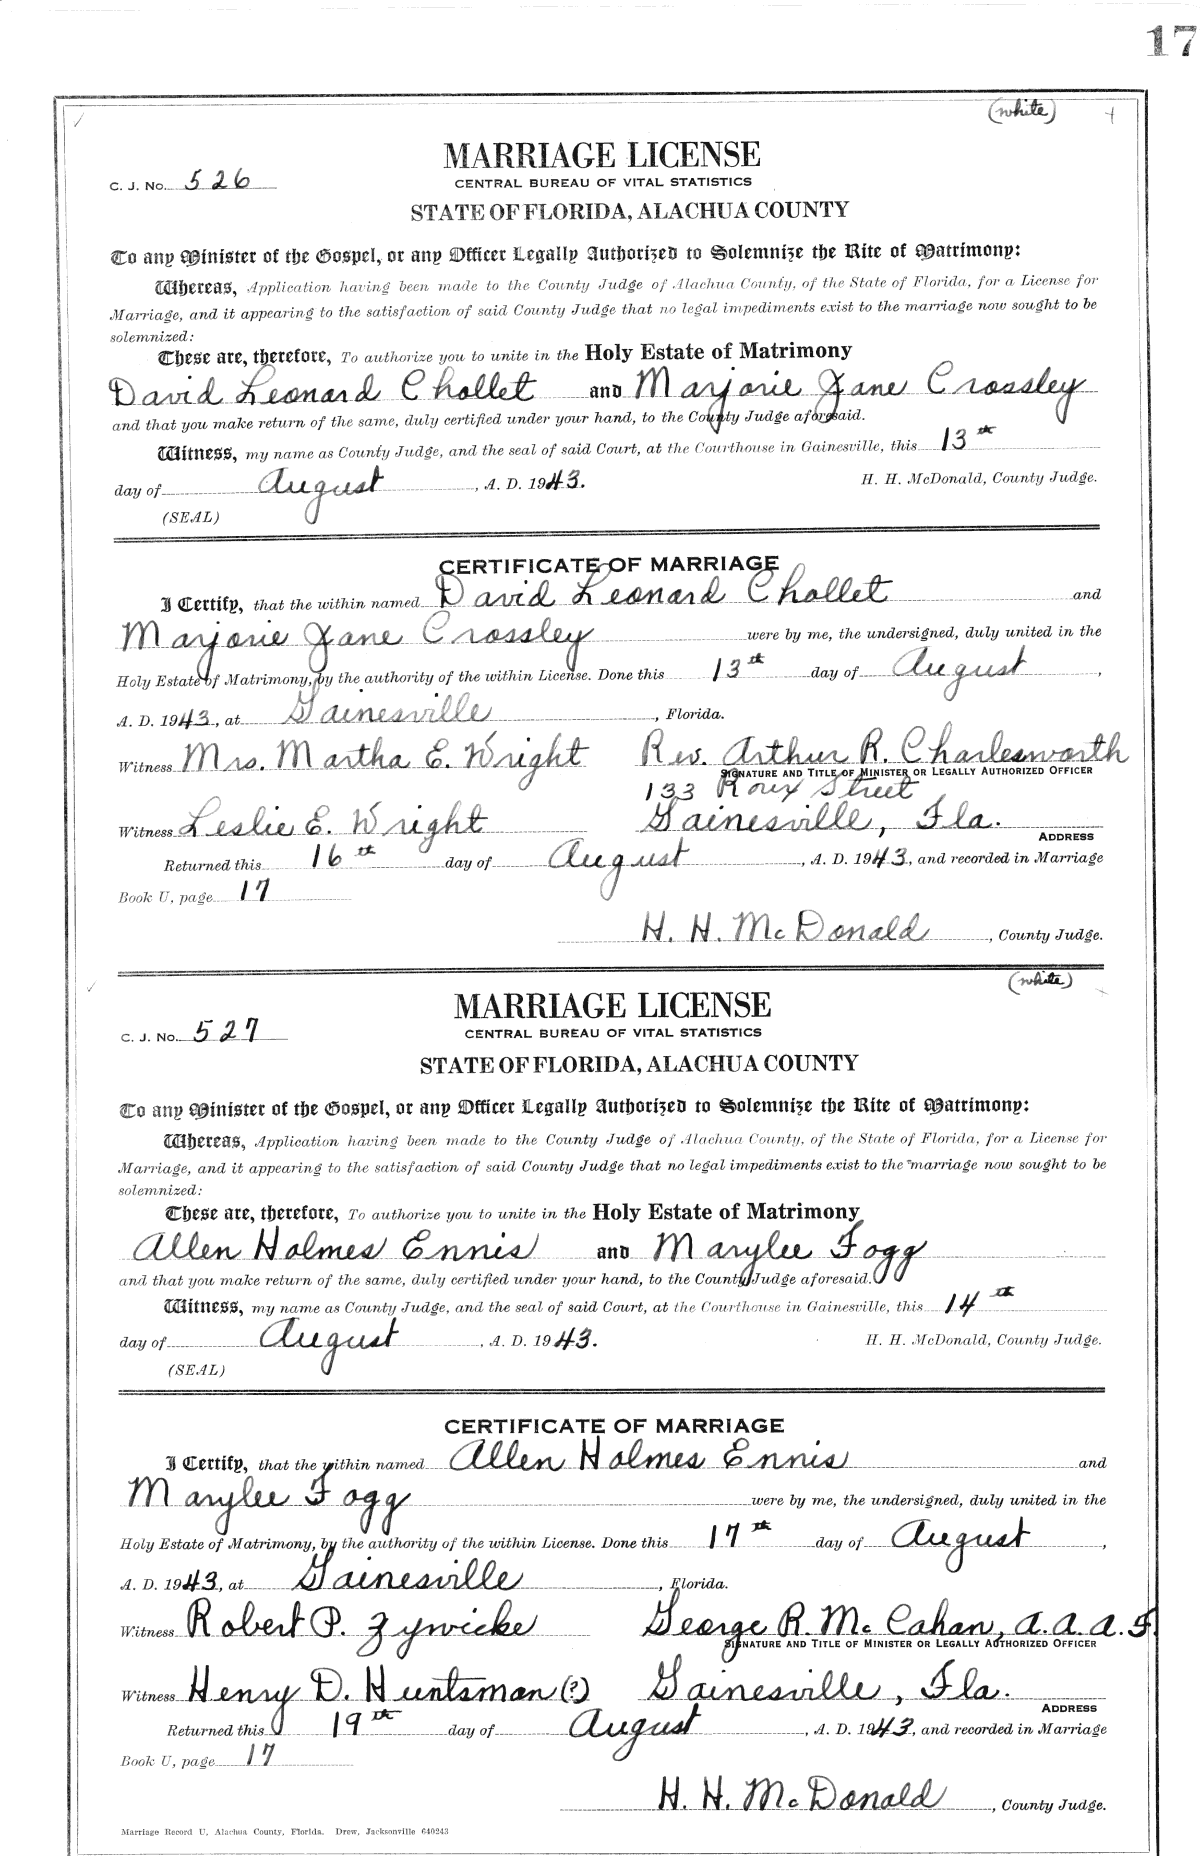 17
(white)
MARRIAGE LICENSE
C. J. No. 526
CENTRAL BUREAU OF VITAL STATISTICS
STATE OF FLORIDA, ALACHUA COUNTY
To any Minister of the Gospel, or any Officer Legally Authorized to Solemnize the Rite of Matrimony:
Whereas, Application having been made to the County Judge of Alachua County, of the State of Florida, for a License for
Marriage, and it appearing to the satisfaction of said County Judge that no legal impediments exist to the marriage now sought to be
solemnized:
These are, therefore, To authorize you to unite in the Holy Estate of Matrimony
David Leonard Chollet and Marjorie Jane Crossley
and that you make return of the same, duly certified under your hand, to the County Judge aforesaid.
Witness, my name as County Judge, and the seal of said Court, at the Courthouse in Gainesville, this 13th
day of August, A. D. 1943. H. H. McDonald, County Judge.
(SEAL)
CERTIFICATE OF MARRIAGE
I Certify, that the within named David Leonard Chollet and
Marjorie Jane Crossley were by me, the undersigned, duly united in the
Holy Estate of Matrimony, by the authority of the within License. Done this 13th day of August,
A. D. 1943, at Gainesville, Florida.
Witness Mrs. Martha E. Wright Rev. Arthur R. Charlesworth
SIGNATURE AND TITLE OF MINISTER OR LEGALLY AUTHORIZED OFFICER
133 Roux Street
Witness Leslie E. Wright Gainesville, Fla.
ADDRESS
Returned this 16th day of August, A. D. 1943, and recorded in Marriage
Book U, page 17
H. H. McDonald, County Judge.
(white)
MARRIAGE LICENSE
C. J. No. 527
CENTRAL BUREAU OF VITAL STATISTICS
STATE OF FLORIDA, ALACHUA COUNTY
To any Minister of the Gospel, or any Officer Legally Authorized to Solemnize the Rite of Matrimony:
Whereas, Application having been made to the County Judge of Alachua County, of the State of Florida, for a License for
Marriage, and it appearing to the satisfaction of said County Judge that no legal impediments exist to the marriage now sought to be
solemnized:
These are, therefore, To authorize you to unite in the Holy Estate of Matrimony
Allen Holmes Ennis and Marylee Fogg
and that you make return of the same, duly certified under your hand, to the County Judge aforesaid.
Witness, my name as County Judge, and the seal of said Court, at the Courthouse in Gainesville, this 14th
day of August, A. D. 1943. H. H. McDonald, County Judge.
(SEAL)
CERTIFICATE OF MARRIAGE
I Certify, that the within named Allen Holmes Ennis and
Marylee Fogg were by me, the undersigned, duly united in the
Holy Estate of Matrimony, by the authority of the within License. Done this 17th day of August,
A. D. 1943, at Gainesville, Florida.
Witness Robert P. Zywicke George R. McCahan, A.A.A.F.
SIGNATURE AND TITLE OF MINISTER OR LEGALLY AUTHORIZED OFFICER
Witness Henry D. Huntsman (?) Gainesville, Fla.
ADDRESS
Returned this 19th day of August, A. D. 1943, and recorded in Marriage
Book U, page 17
H. H. McDonald, County Judge.
Marriage Record U, Alachua County, Florida. Drew, Jacksonville 640243